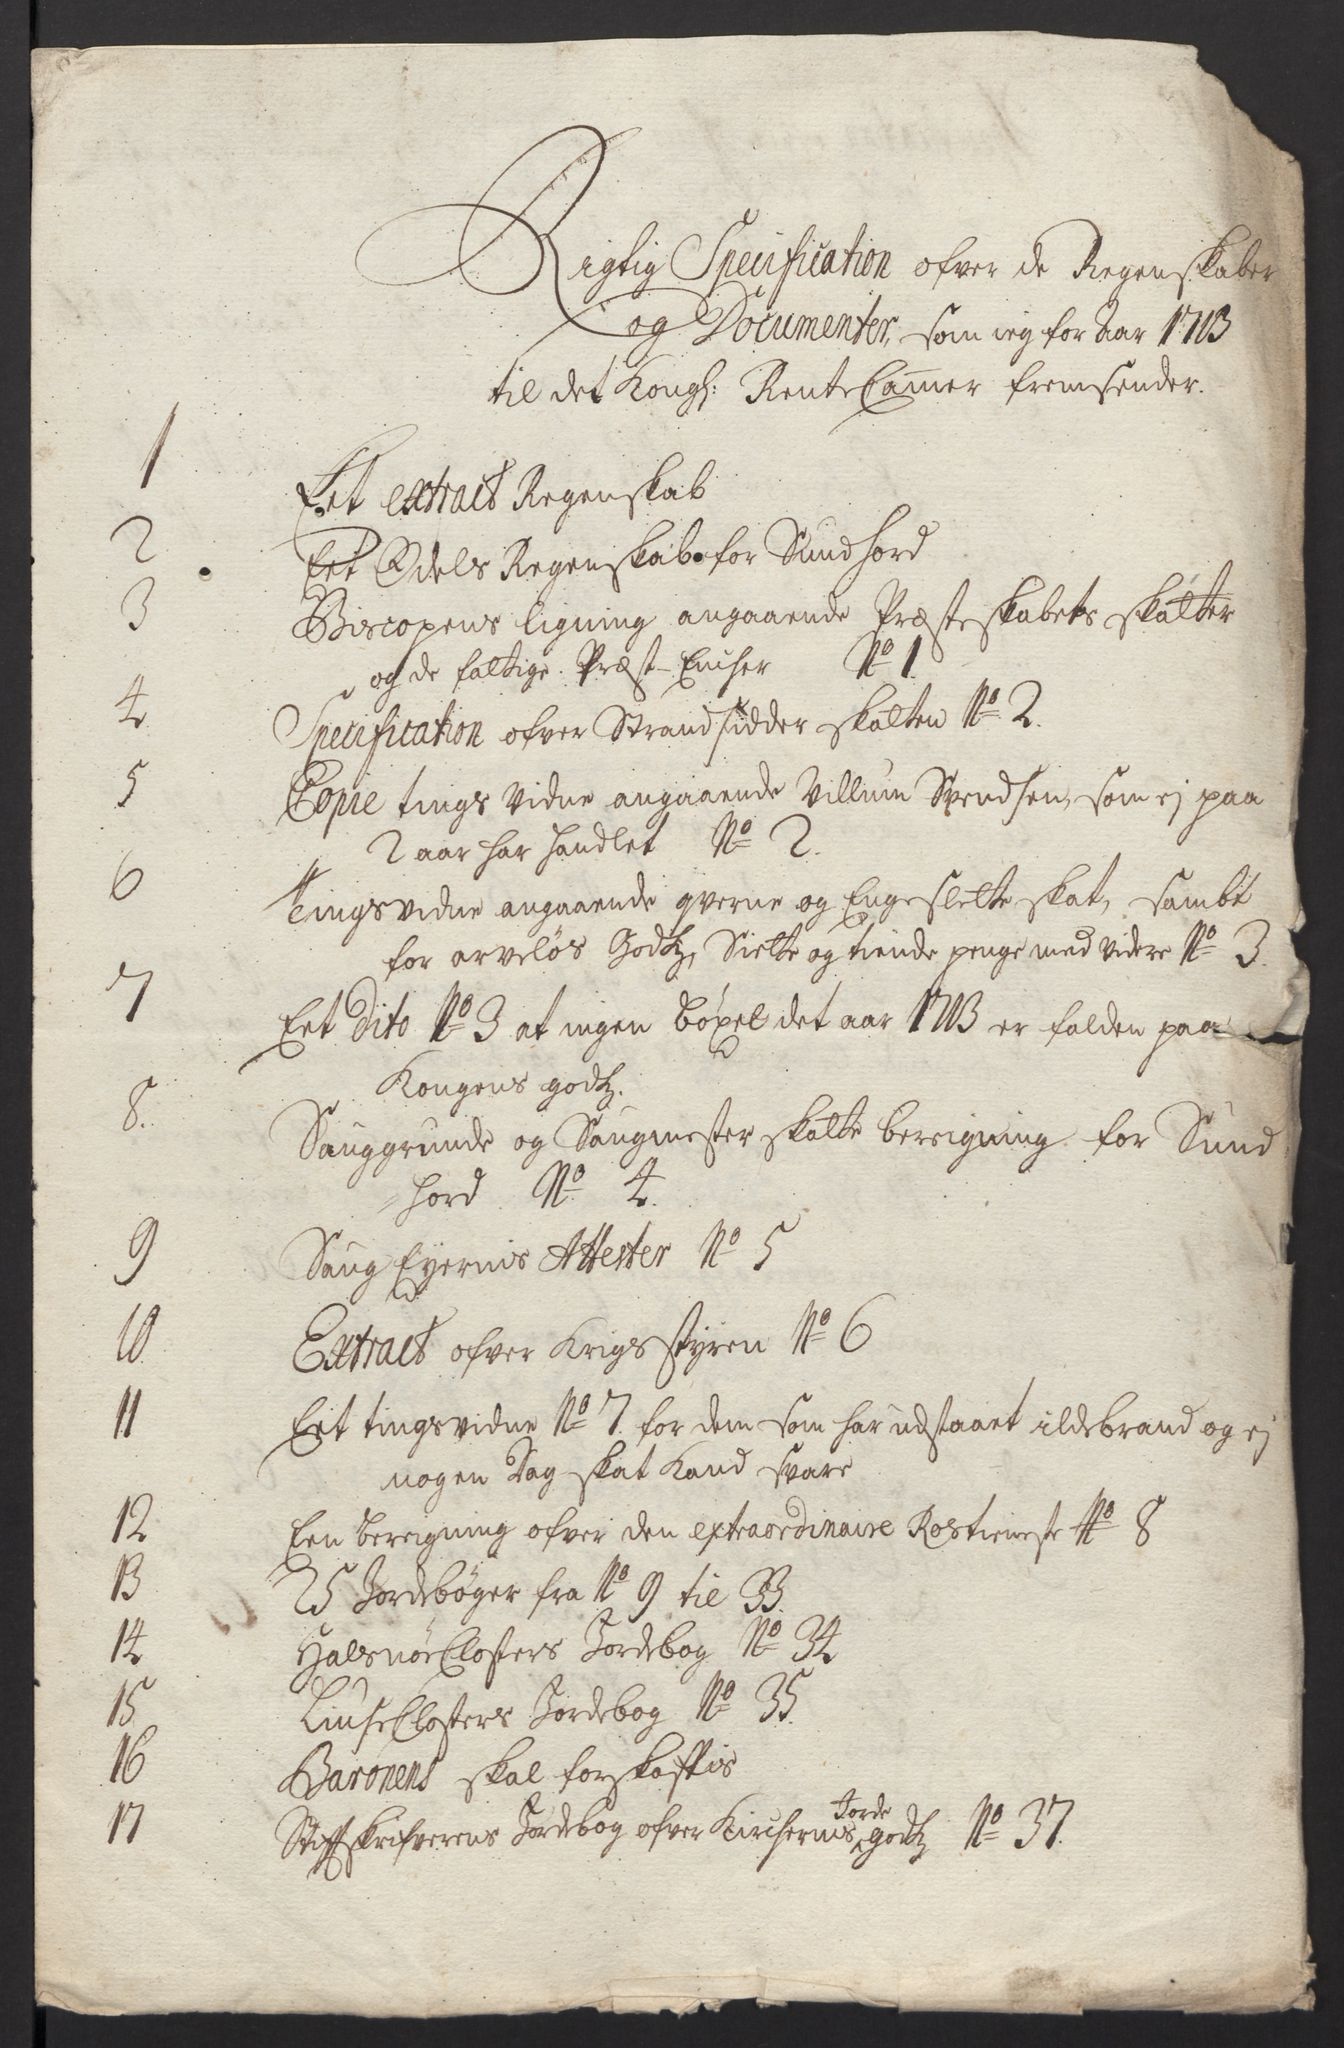 Rigtig Specification ofver de Regenskaber
og Documenter, som ieg for Aar 1703
til det Kongl: Rente Cammer fremsender.
1 Eet extract Regenskab
2 Eet Odels Regenskab for Sundhord
3 Biscopens ligning angaaende Præsteskabets skatter
og de fattige Præst-Encher No 1
4 Specification ofver Strandsidder skatten No 2.
5 Copie tings vidne angaaende Villum Svendsen, som ej paa
2 aar har handlet No 2.
6 Tingsvidne angaaende qverne og Engeslette skat, sambt
for arveløs Godtz, Siette og tiende penge med videre No 3.
7 Eet dito No 3 at ingen bøxel det aar 1703 er falden paa
Kongens godtz.
8. Sauggrunde og Saugmester skatte beregning for Sund
hord No 4.
9 Saug Eyernis Attester No 5
10 Extract ofver Krigs styren No 6
11 Eet tingsvidne No 7 for dem som har udstaaet ildebrand og ej
nogen Dag skat kand svare
12 Een beregning ofver den extraordinaire Rostieneste No 8
13 25 Jordebøger fra No 9 til 33.
14 Halsnøe Closters Jordebog No 34
15 Liuse Closters Jordebog No 35.
16 Baronens skal forskaffis
17 Stiftskrifverens Jordebog ofver Kirchernis Jorde godtz No 37.